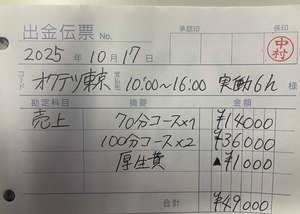 出金伝票 No. 承認印 係印
2025年10月17日 中村
コード 支払先 オクテツ東京 10:00~16:00 実働6h 様
勘定科目 摘要 金額
売上 70分コース×1 ¥14000
100分コース×2 ¥36000
厚生費 ▲¥1000
合計 ¥49000